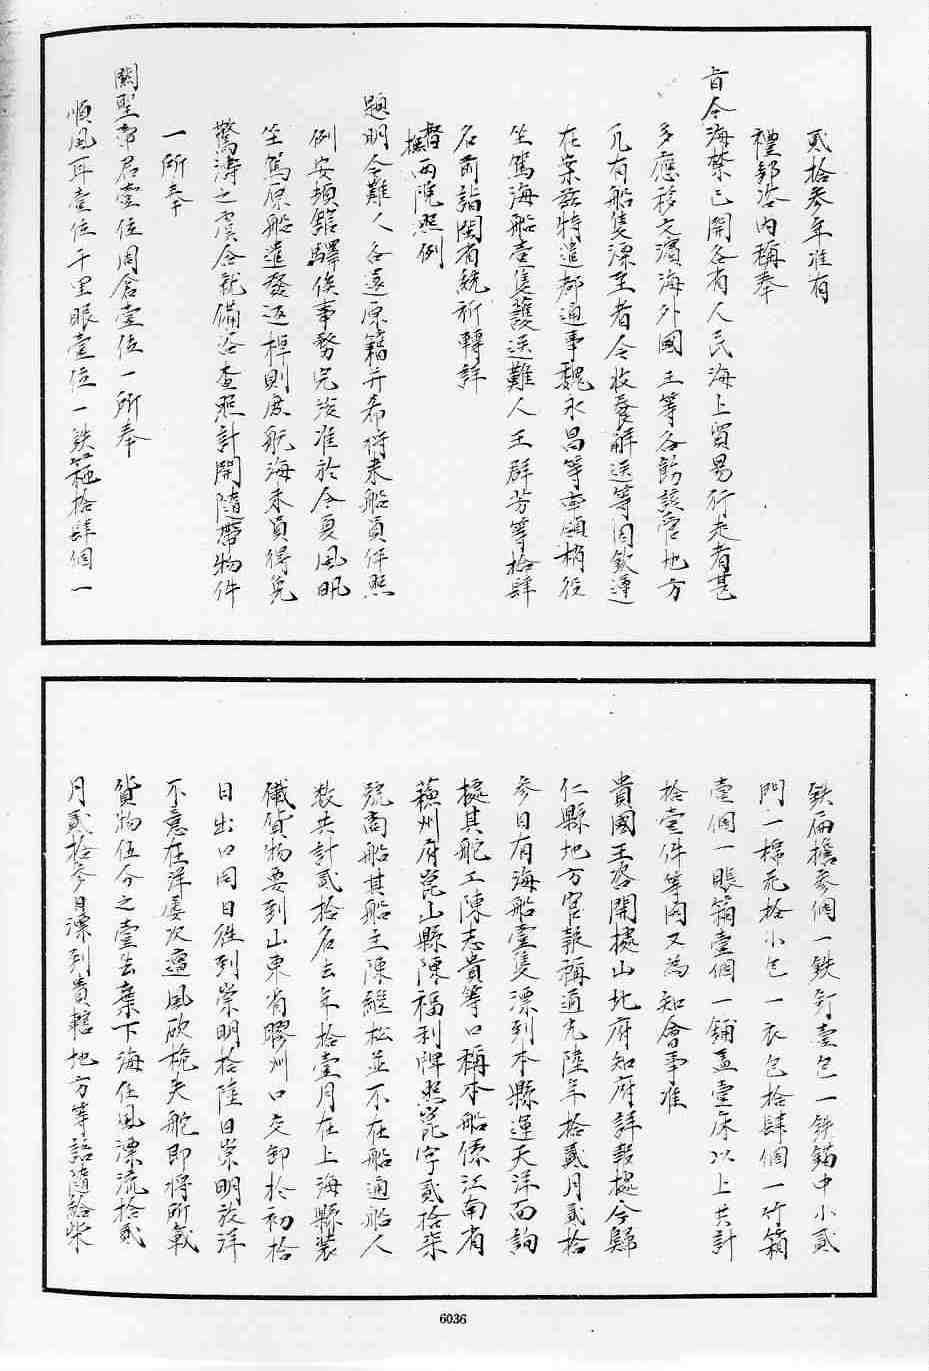 貳拾參年准有
禮部咨內稱奉
旨今海禁已開各省人民海上貿易行走者甚
多應移文濱海外國王等各飭該官地方
凡有船隻漂至者令收養解送等因欽遵
在案茲特遣都通事魏永昌等率領梢役
坐駕海船壹隻護送難人王群芳等拾肆
名前詣閩省統祈轉詳
督
撫兩院照例
題明今難人各還原籍并希將來船員伴照
例安頓館驛俟事務完竣准於今夏風帆
坐駕原船遣發返棹則庶航海末員得免
驚濤之虞合就備咨查照計開隨帶物件
一所奉
關聖帝君壹位周倉壹位一所奉
順風耳壹位千里眼壹位一鉄箍拾肆個一
鉄扁担參個一鉄釘壹包一鉄錨中小貳
門一棉花拾小包一衣包拾肆個一竹箱
壹個一賬箱壹個一鋪蓋壹床以上共計
拾壹件等因又為知會事准
貴國王咨開據山北府知府詳報據今歸
仁縣地方官報稱道光陸年拾貳月貳拾
參日有海船壹隻漂到本縣運天洋面詢
據其舵工陳志貴等口稱本船係江南省
蘇州府崑山縣陳福利牌照崑字貳拾柒
號商船其船主陳繼松並不在船通船人
数共計貳拾名去年拾壹月在上海縣裝
儎貨物要到山東省膠州口交卸於初拾
日出口同日徃到崇明拾陸日崇明放洋
不意在洋屡次遭風砍桅失舵即將所載
貨物伍分之壹丟棄下海任風漂流拾貳
月貳拾參日漂到貴轄地方等語隨給柴
6036